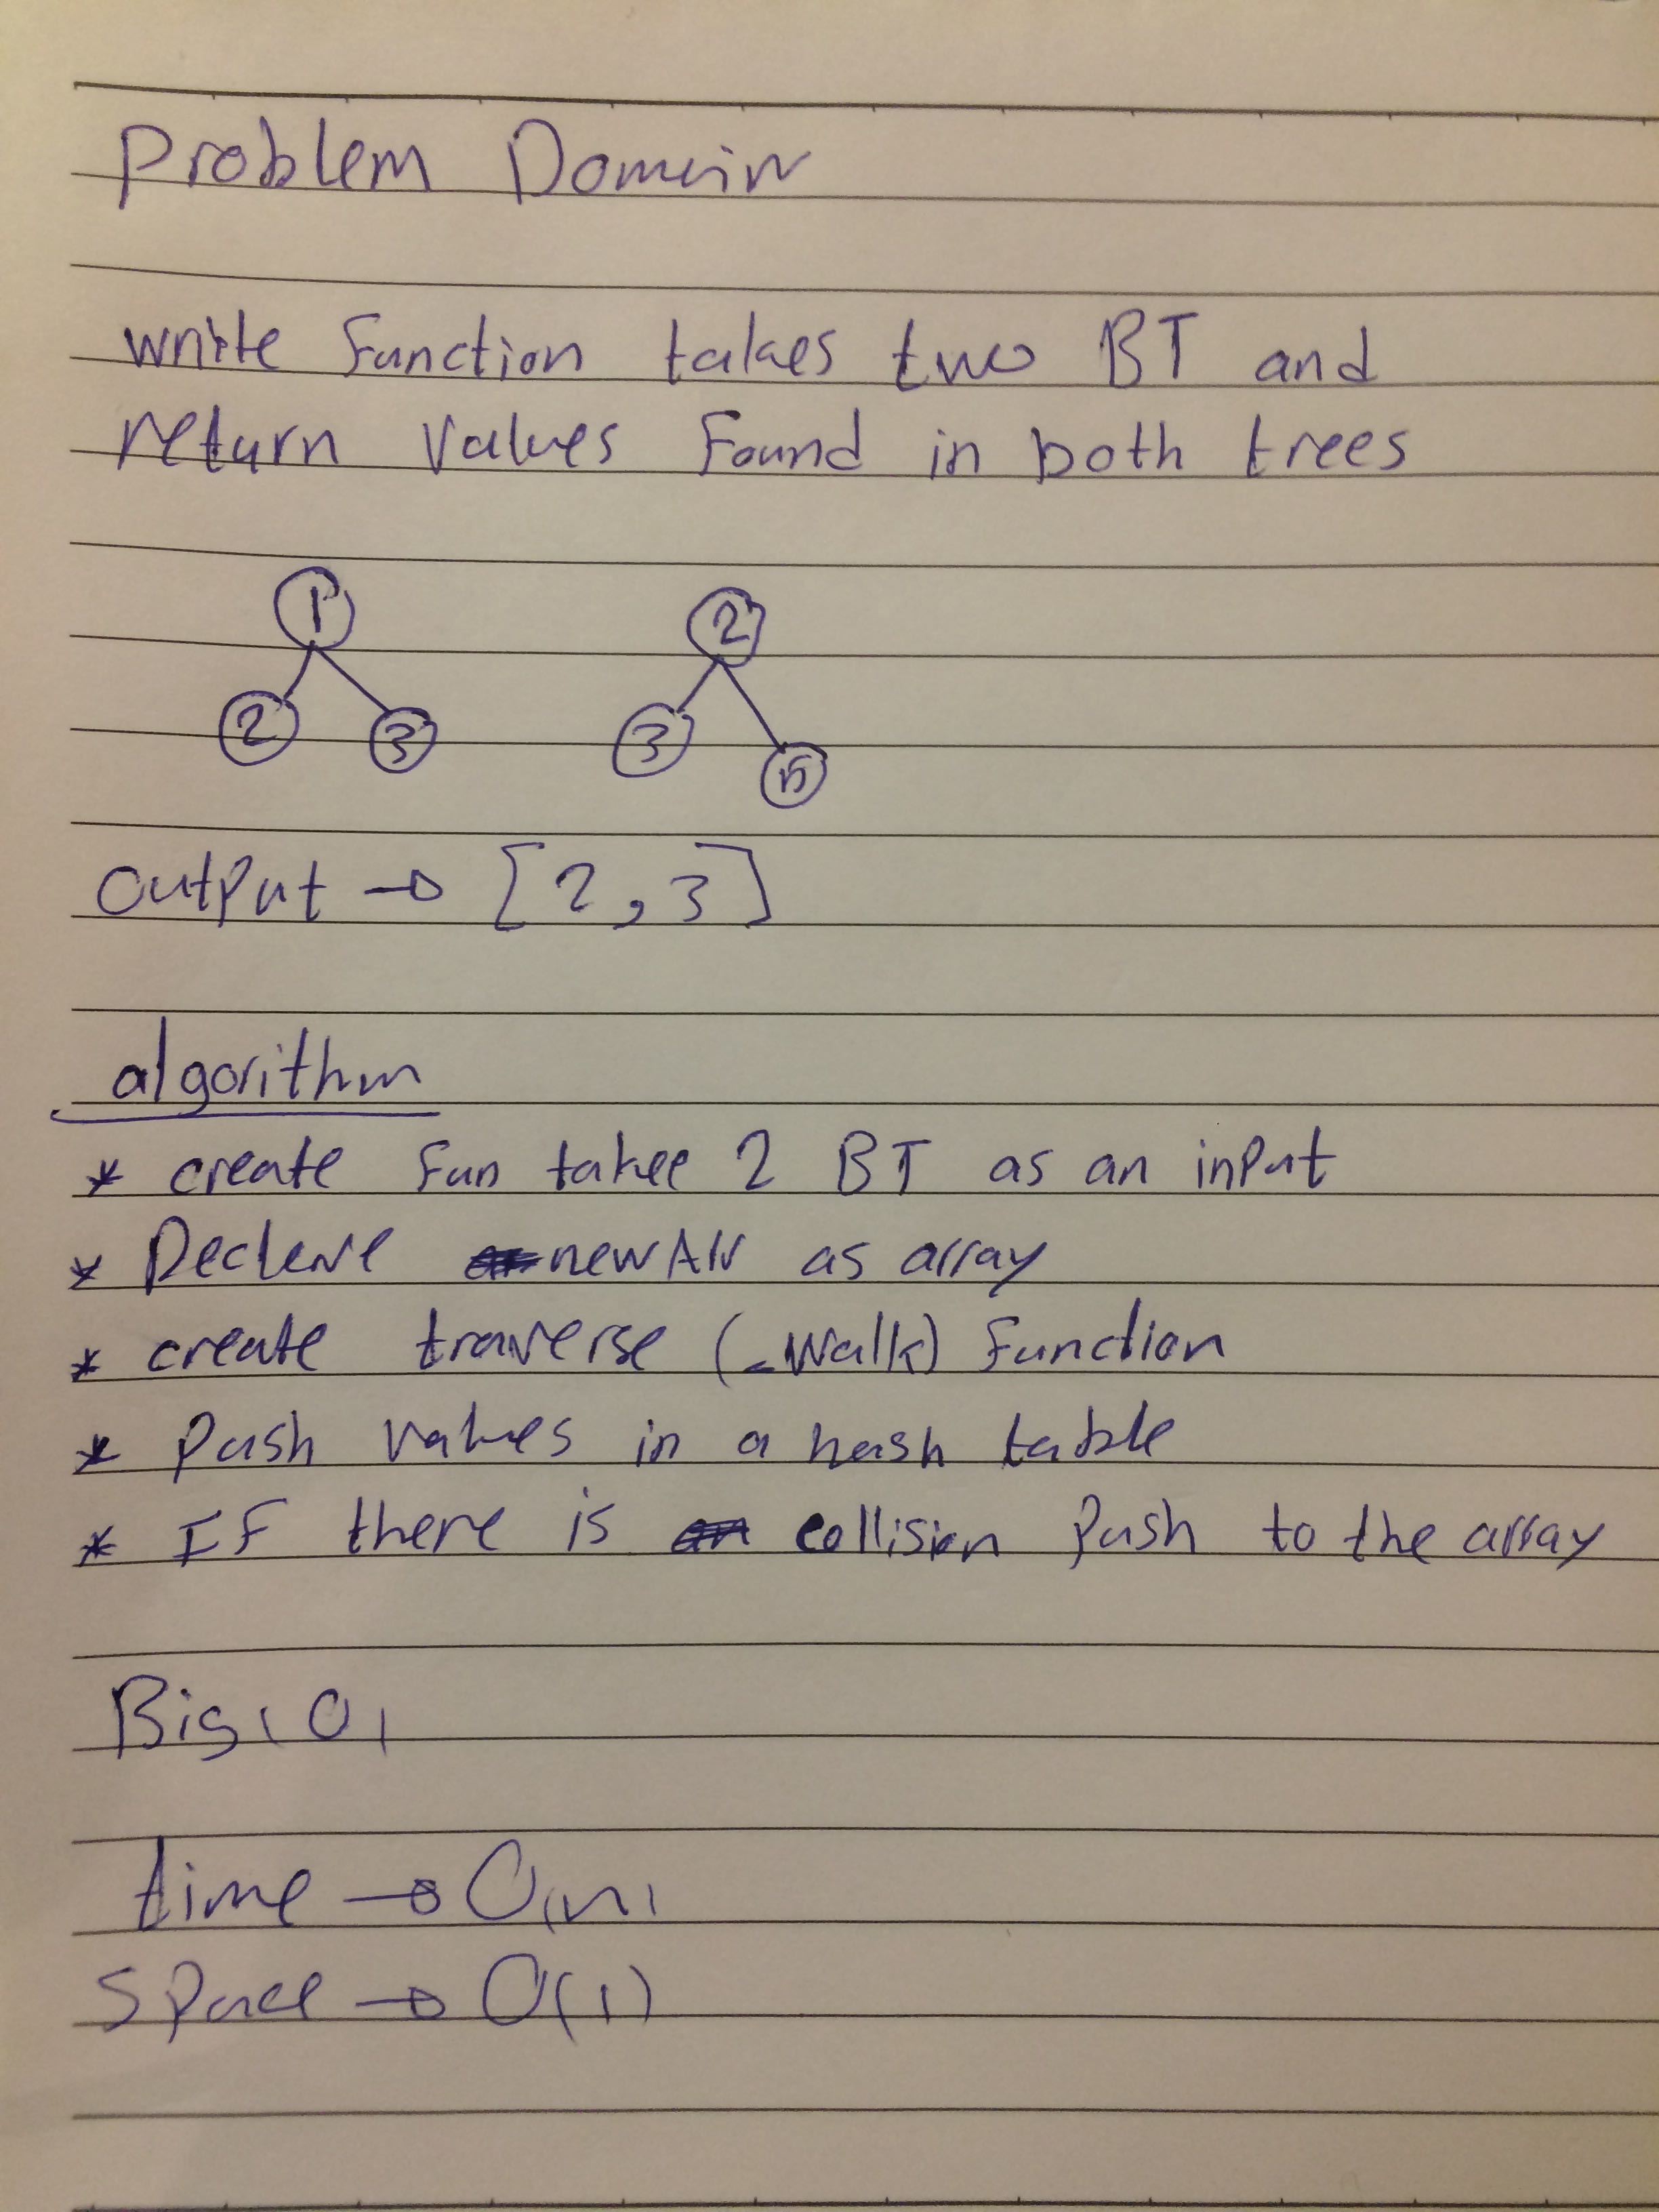 Problem Domain
write function takes two BT and
return values found in both trees
1 2
2 3 3 15
output → [2,3]
algorithm
* create fun takee 2 BT as an input
* Declare newArr as array
* create traverse (_walk) function
* Push values in a hash table
* IF there is collision Push to the array
Big(O)
time → O(n)
space → O(1)